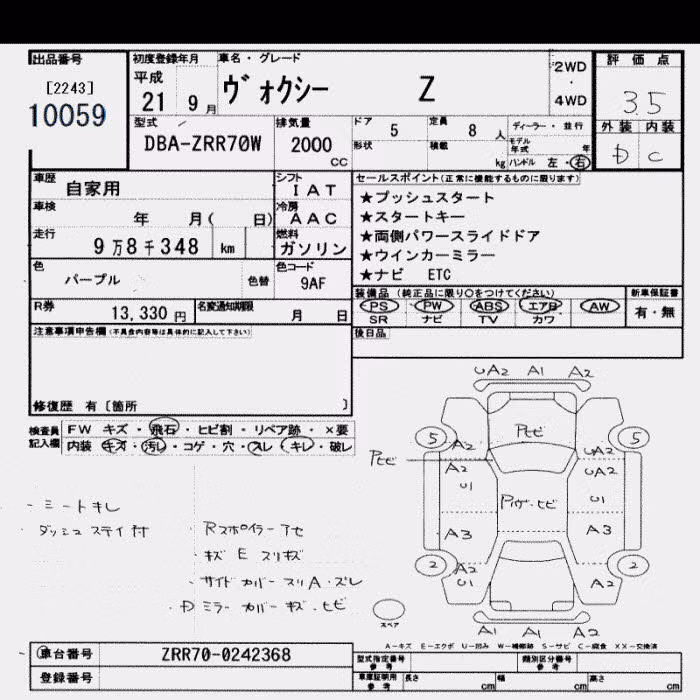 出品番号 初度登録年月 車名・グレード 評価点
[2243] 平成 2WD
10059 21 9月 ヴォクシー Z ・
4WD 3.5
型式 排気量 ドア 5 定員 8人 ディーラー・並行 外装 内装
DBA-ZRR70W 2000 CC 形状 積載 kg モデル年式 年 D C
ハンドル 左・右
車歴 自家用 シフト IAT セールスポイント(正常に機能するものに限ります)
車検 年 月( 日) 冷房 AAC ★プッシュスタート
★スタートキー
走行 9万8千348 km 燃料 ガソリン ★両側パワースライドドア
★ウインカーミラー
色 パープル 色替 色コード 9AF ★ナビ ETC
R券 13,330円 名変通知期限 月 日 装備品(純正品に限り○をつけてください) 新車保証書
PS PW ABS エアB AW 有・無
SR ナビ TV カワ
注意事項申告欄(不具合内容等は具体的に記入して下さい) 後日品
修復歴 有〔箇所 〕
検査員記入欄 FW キズ・飛石・ヒビ割・リペア跡・×要
内装 キズ・汚レ・コゲ・穴・スレ・キレ・破レ
UA2 A1 A2
Pセビ
5 A2 5
Pセビ A2 A2
UA2
U1 U1
Pサザ・ヒビ
A3 A3
2 A2 2
U1 A2
A1 A1 A2
スペア
・シートキレ
・ダッシュ ステイ付
・Rスポイラーアセ
・キズ E スリキズ
・サイド カバー スリA・ズレ
・D ミラー カバー キズ・ヒビ
A-キズ E-エクボ U-凹み W-補修跡 S-サビ C-腐食 XX-交換済
車台番号 ZRR70-0242368 型式指定番号 参考 類別区分番号 参考
登録番号 車庫証明用 参考 長さ cm 幅 cm 高さ cm